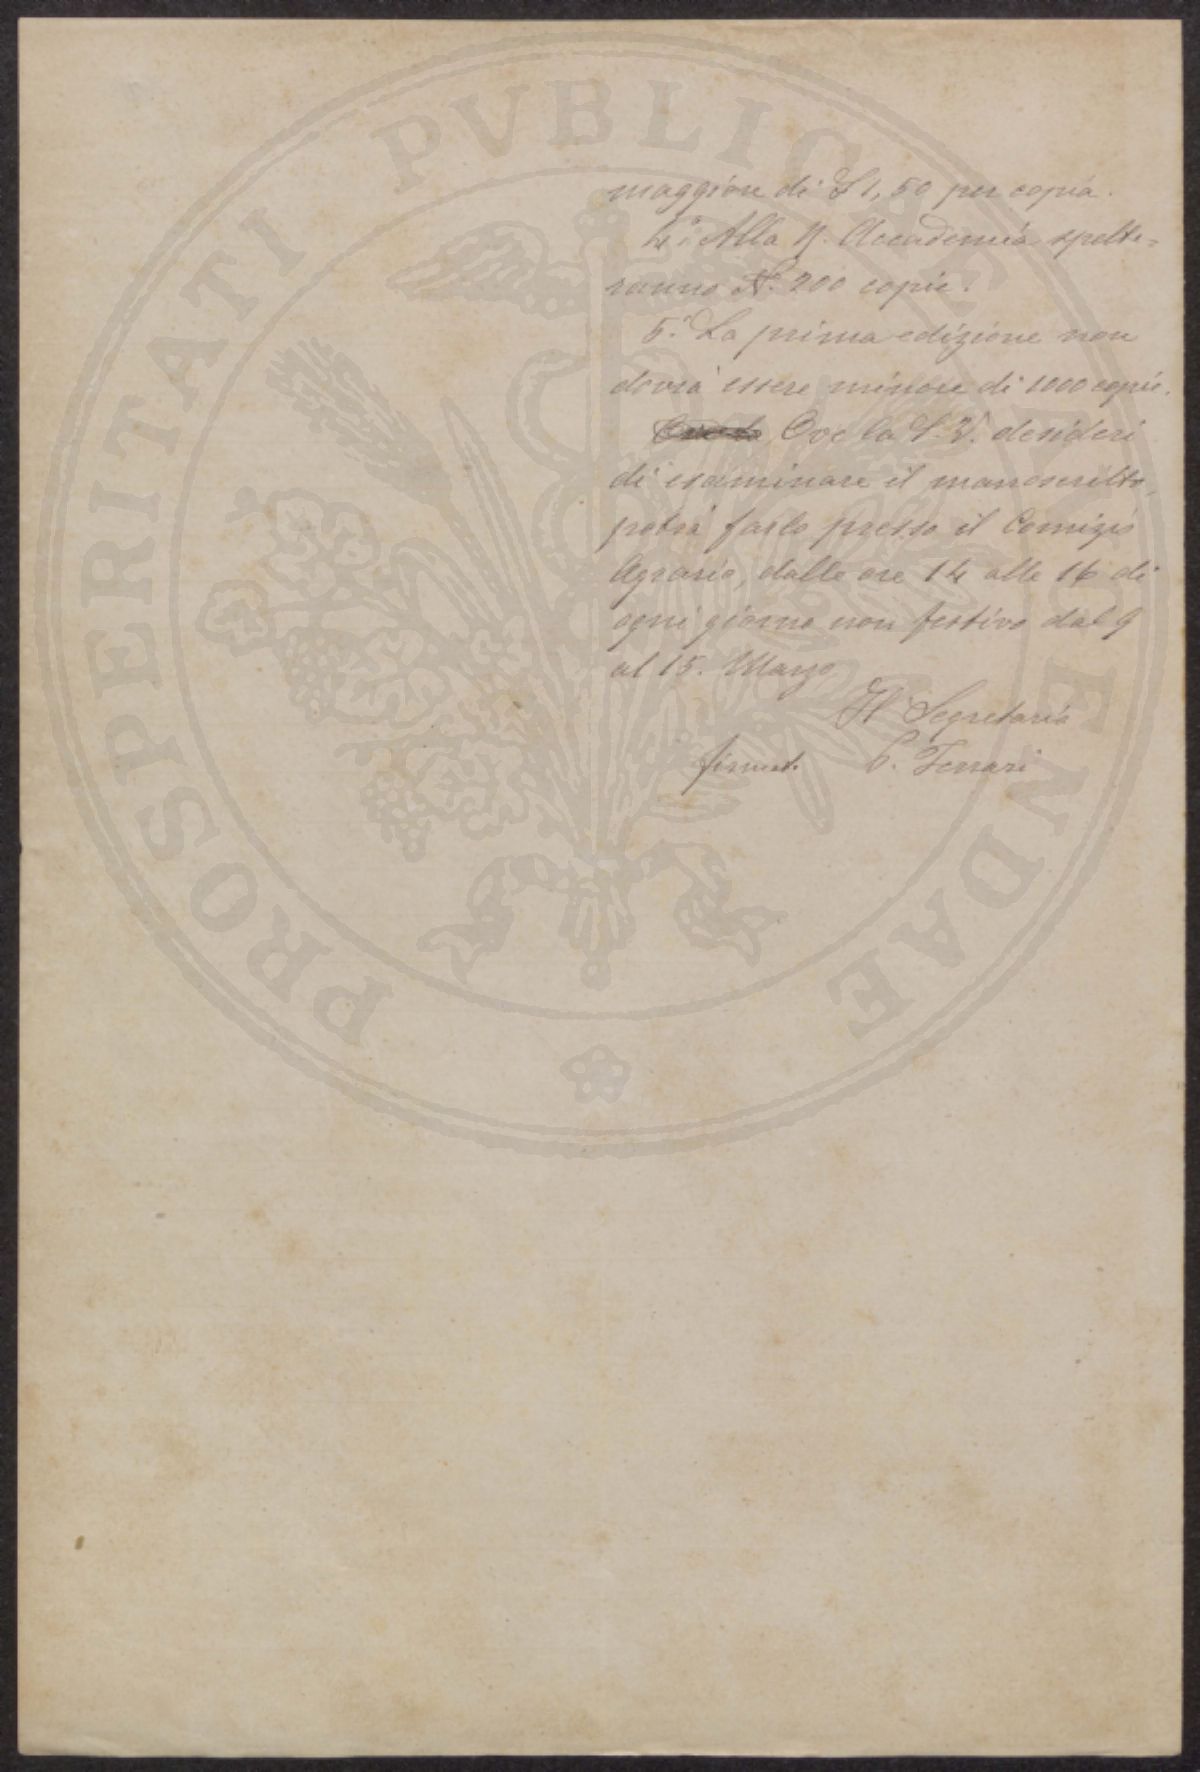 maggiore di £ 1,50 per copia.
4.° Alla R. Accademia spette=
ranno N. 200 copie.
5.° La prima edizione non
dovrà essere minore di 1000 copie.
Ove la S. V. desideri
di esaminare il manoscritto,
potrà farlo presso il Comizio
Agrario, dalle ore 14 alle 16 di
ogni giorno non festivo dal 9
al 15. Marzo
Il Segretario
firmat. P. Ferrari
PROSPERITATI PVBLICAE AVGENDAE